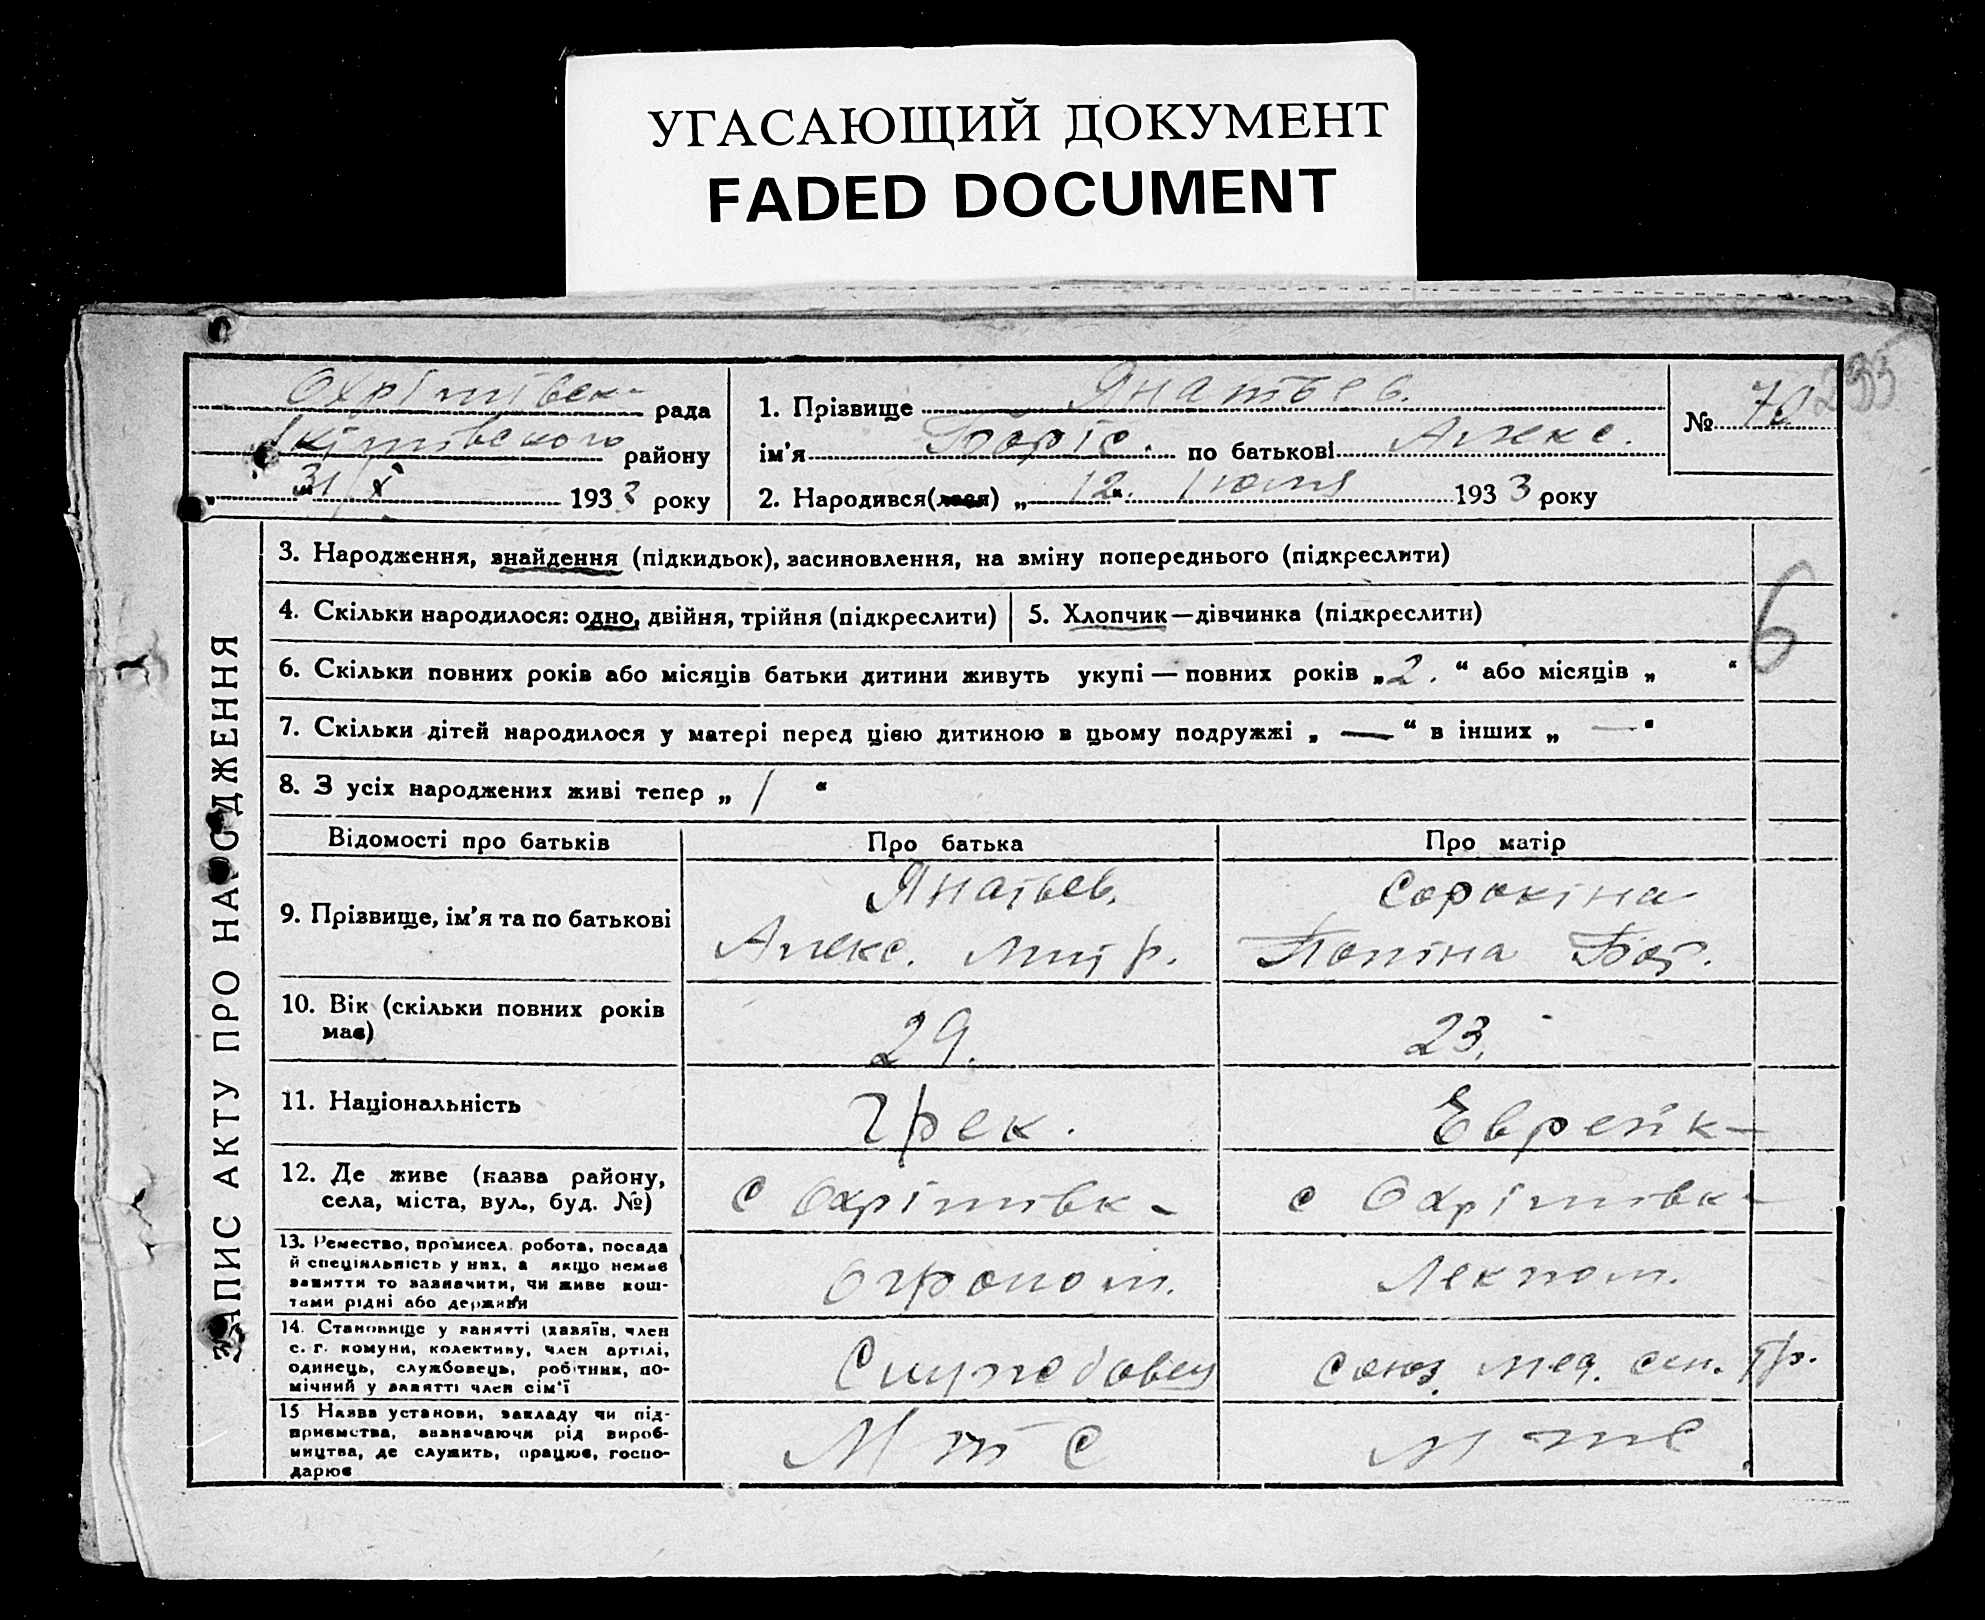 УГАСАЮЩИЙ ДОКУМЕНТ
FADED DOCUMENT
235
Охрімівськ рада
Якімівського району
„ 31/X 1933 року
1. Прізвище Янатьев.
ім'я Боріс. по батькові Алекс.
2. Народився(лася) „ 12 “ Іюля 1933 року
№ 70
ЗАПИС АКТУ ПРО НАРОДЖЕННЯ
3. Народження, знайдення (підкидьок), засиновлення, на зміну попереднього (підкреслити)
4. Скільки народилося: одно, двійня, трійня (підкреслити)
5. Хлопчик—дівчинка (підкреслити)
6
6. Скільки повних років або місяців батьки дитини живуть укупі — повних років „ 2. “ або місяців „ “
7. Скільки дітей народилося у матері перед цією дитиною в цьому подружжі „ — “ в інших „ — “
8. З усіх народжених живі тепер „ 1 “
Відомості про батьків Про батька Про матір
9. Прізвище, ім'я та по батькові
Янатьев.
Алекс. Митр.
Сорокіна
Поліна Бор.
10. Вік (скільки повних років має)
29.
23.
11. Національність
Грек.
Еврейк
12. Де живе (назва району, села, міста, вул., буд. №)
с Охрімівк
с Охрімівк
13. Ремество, промисел, робота, посада
й спеціяльність у них, а якщо немає
заняття то зазначити, чи живе кош-
тами рідні або держави
Огроном.
Лекпом.
14. Становище у занятті (хазяїн, член
с. г. комуни, колективу, член артілі,
одинець, службовець, робітник, по-
мічний у занятті член сім'ї
Службовець
Союз. мед. сан. Пр.
15 Назва установи, закладу чи під-
приємства, зазначаючи рід вироб-
ництва, де служить, працює, госпо-
дарює
МТС
МТС